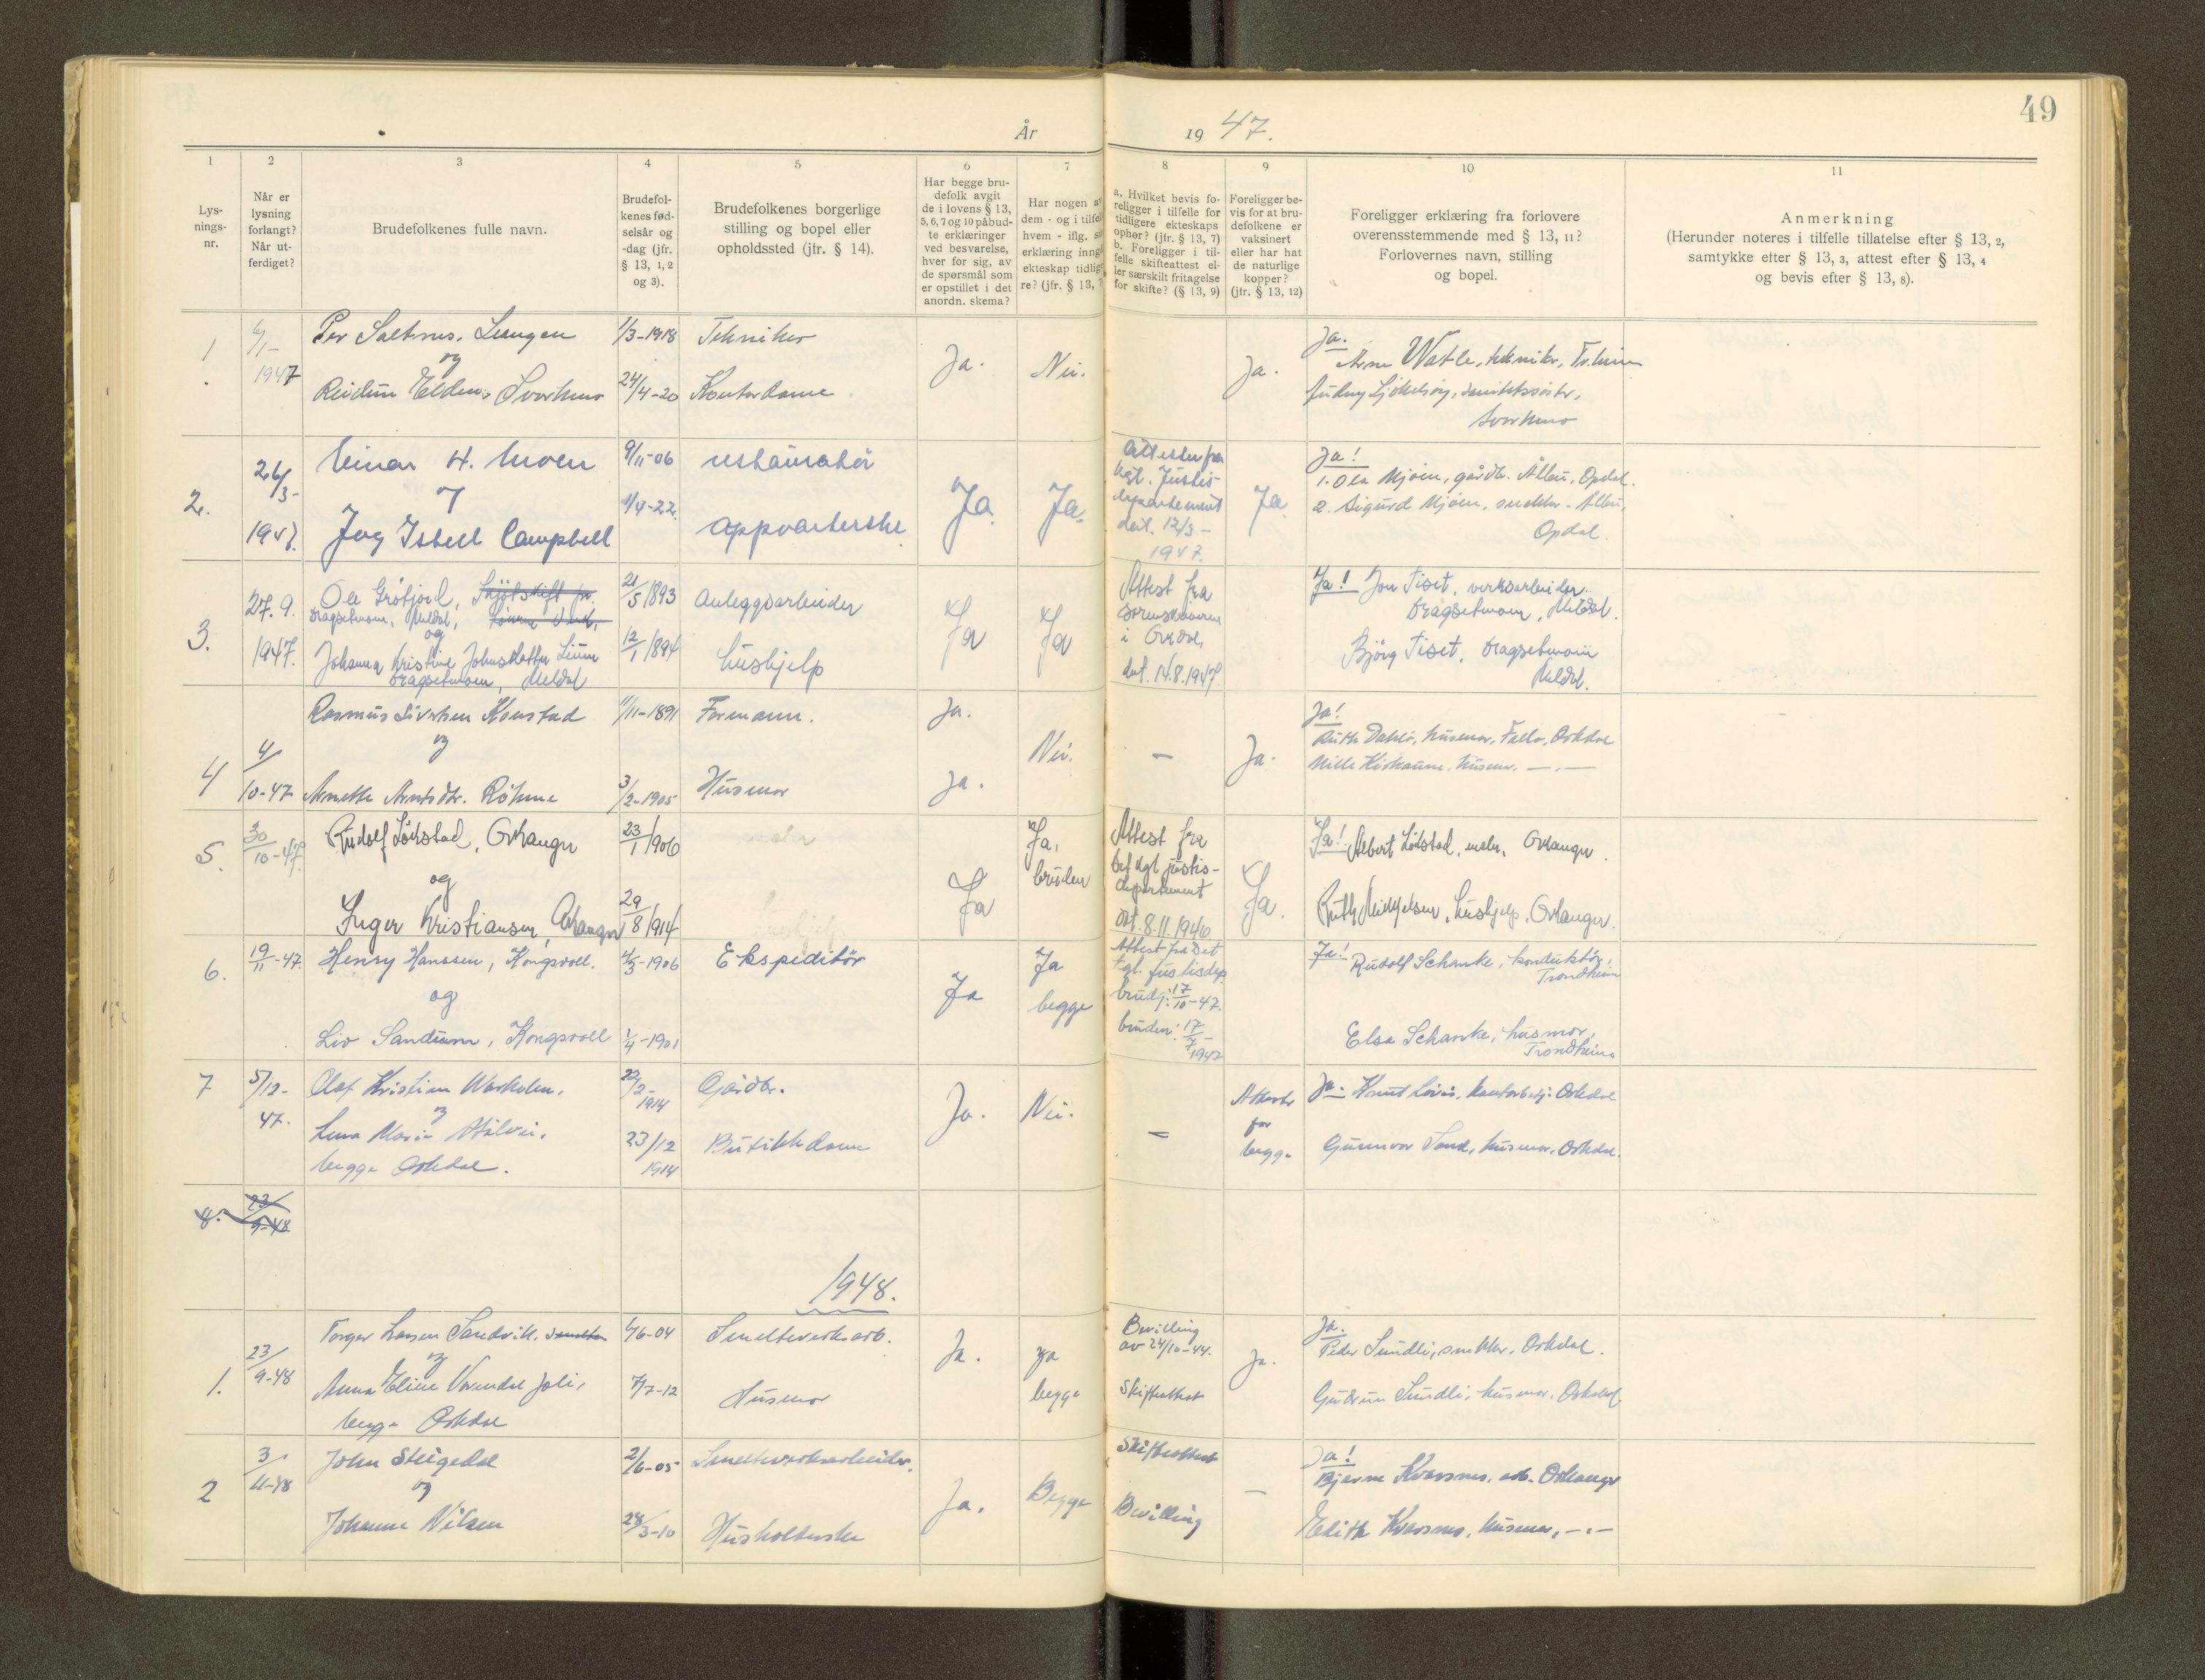 49
År 1947.
1 2 3 4 5 6 7 8 9 10 11
Lys-
nings-
nr.
Når er
lysning
forlangt?
Når ut-
ferdiget?
Brudefolkenes fulle navn.
Brudefol-
kenes fød-
selsår og
-dag (jfr.
§ 13, 1, 2
og 3).
Brudefolkenes borgerlige
stilling og bopel eller
opholdssted (jfr. § 14).
Har begge bru-
defolk avgit
de i lovens § 13,
5, 6, 7 og 10 påbud-
te erklæringer
ved besvarelse,
hver for sig, av
de spørsmål som
er opstillet i det
anordn. skema?
Har nogen av
dem - og i tilfel
hvem - iflg. si
erklæring inng
ekteskap tidlig
re? (jfr. § 13, 7
a. Hvilket bevis fo-
religger i tilfelle for
tidligere ekteskaps
ophør? (jfr. § 13, 7)
b. Foreligger i til-
felle skifteattest el-
ler særskilt fritagelse
for skifte? (§ 13, 9)
Foreligger be-
vis for at bru-
defolkene er
vaksinert
eller har hat
de naturlige
kopper?
(jfr. § 13, 12)
Foreligger erklæring fra forlovere
overensstemmende med § 13, 11?
Forlovernes navn, stilling
og bopel.
Anmerkning
(Herunder noteres i tilfelle tillatelse efter § 13, 2,
samtykke efter § 13, 3, attest efter § 13, 4
og bevis efter § 13, 8).
1
6/1-
1947
Per Saltnes, Lungen
og
Reidun Elden, Svorkmo
1/3-1918
24/4-20
Tekniker
Kontordame
Ja.
Nei.
Ja.
Ja.
Arne Watle, tekniker, Tr.heim
Svorkmo
2.
26/3-
1947.
Einar H. Moen
og
Joy Isbell Campbell
9/11-06
1/4-22.
restauratør
oppvarterske.
Ja.
Ja.
Attester fra
kgl. Justis-
departement
dat. 12/3-
1947.
Ja.
Ja!
1. Ola Mjøen, gårdbr. Ålbu, Opdal.
2. Sigurd Mjøen, snekker. Ålbu,
Opdal.
3.
27.9.
1947.
Ole Grøtjord,
Dragsetmoen, Meldal,
og
Johanna Kristine Johnsdatter Lium
Dragsetmoen, Meldal
21/5 1893
12/1 1894
Anleggsarbeider
hushjelp
Ja
Ja
Attest fra
sorenskriveren
i Orkdal,
dat. 14.8.1947.
Ja! Jon Tiset, verksarbeider.
Dragsetmoen, Meldal.
Bjørg Tiset, Dragsetmoen
Meldal.
4
4/10-47
Rasmus Sivertsen Konstad
og
Annette Arntsdtr. Röhme
11/11-1891
3/2-1905
Formann.
Husmor
Ja.
Ja.
Nei.
—
Ja.
Ja!
Ruth Dahlö, husmor, Orkdal
husmor. —.—
5.
30/10-47.
Rudolf Løkstad, Orkanger
og
Inger Kristiansen, Orkanger
23/1 1906
29/8 1914
maler
hushjelp
Ja
Ja,
bruden
Attest fra
Det kgl justis-
departement
dat. 8.11.1946
Ja.
Ja! Albert Løkstad, maler, Orkanger.
Ruth Mikkelsen, hushjelp, Orkanger.
6.
19/11-47.
Henry Hanssen, Kongsvoll.
og
Liv Sandum, Kongsvoll
4/3-1906
1/4-1901
Ekspeditør
Ja
Ja
begge
Attest fra Det
kgl. Justisdep.
brudg: 17/10-47.
bruden: 17/7-
1947
Ja! Rudolf Schanke, konduktør,
Trondheim
Elsa Schanke, husmor,
Trondheim
7
5/12-
47.
Olaf Kristian Warholm.
og
Lena Marie
begge Orkdal.
22/2-
1914
23/12
1914
Gårdbr.
Butikkdame
Ja.
Nei.
—
Attester
for
begge
Ja. Knut kontorbetj. Orkdal
Gunnvor Sand, husmor, Orkdal.
8.
23/9-48
1948.
1.
23/9-48
Torger Larsen Sandvik,
og
Anna Eline Joli,
begge Orkdal
6/6-04
7/7-12
Smelteverksarb.
Husmor
Ja.
ja
begge
Bevilling
av 24/10-44.
Skifteattest
Ja.
Ja.
Peder Sundli, snekker. Orkdal.
Gudrun Sundli, husmor. Orkdal
2
3/11-48
John Stuigedal
og
Johanne Nilsen
2/6-05
28/3-10
Smelteverksarbeider.
Husholderske
Ja.
Begge
Skifteattest
Bevilling
—
Ja!
Bjarne Kvarsnes, arb. Orkanger
Edith Kvarsnes, husmor, —.—